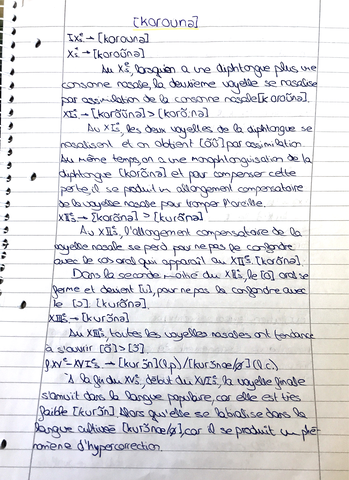 [korounə]
IXᵉ → [korounə]
Xᵉ → [korõũnə]
Au Xᵉs, lorsqu'on a une diphtongue plus une
consonne nasale, la deuxième voyelle se nasalise
par assimilation de la consonne nasale [koroũnə].
XIᵉs → [korõũnə] > [korõ:nə]
Au XIᵉs, les deux voyelles de la diphtongue se
nasalisent et on obtient [õũ] par assimilation
Au même temps, on a une monophtonguisation de la
diphtongue [korõnə] et pour compenser cette
perte, il se produit un allongement compensatoire
de la voyelle nasale pour tromper l'oreille.
XIIᵉs → [korõnə] > [kurõnə]
Au XIIᵉs, l'allongement compensatoire de la
voyelle nasale se perd pour ne pas le confondre
avec le cas oral qui apparaît au XIIᵉs. [korõnə].
Dans la seconde moitié du XIIᵉs, le [o] oral se
ferme et devient [u], pour ne pas le confondre avec
le [ɔ]. [kurõnə]
XIIIᵉs → [kurɔ̃nə]
Au XIIIᵉs, toutes les voyelles nasales ont tendance
à s'ouvrir [õ] > [ɔ̃].
f.XVᵉ-XVIᵉs → [kurɔ̃n] (l.p) / [kurɔ̃nœ/ø] (l.c).
À la fin du XVᵉs, début du XVIᵉs, la voyelle finale
s'amuït dans la langue populaire, car elle est très
faible [kurɔ̃n]. Alors qu'elle se labialise dans la
langue cultivée [kurɔ̃nœ/ø], car il se produit un phé-
nomène d'hypercorrection.